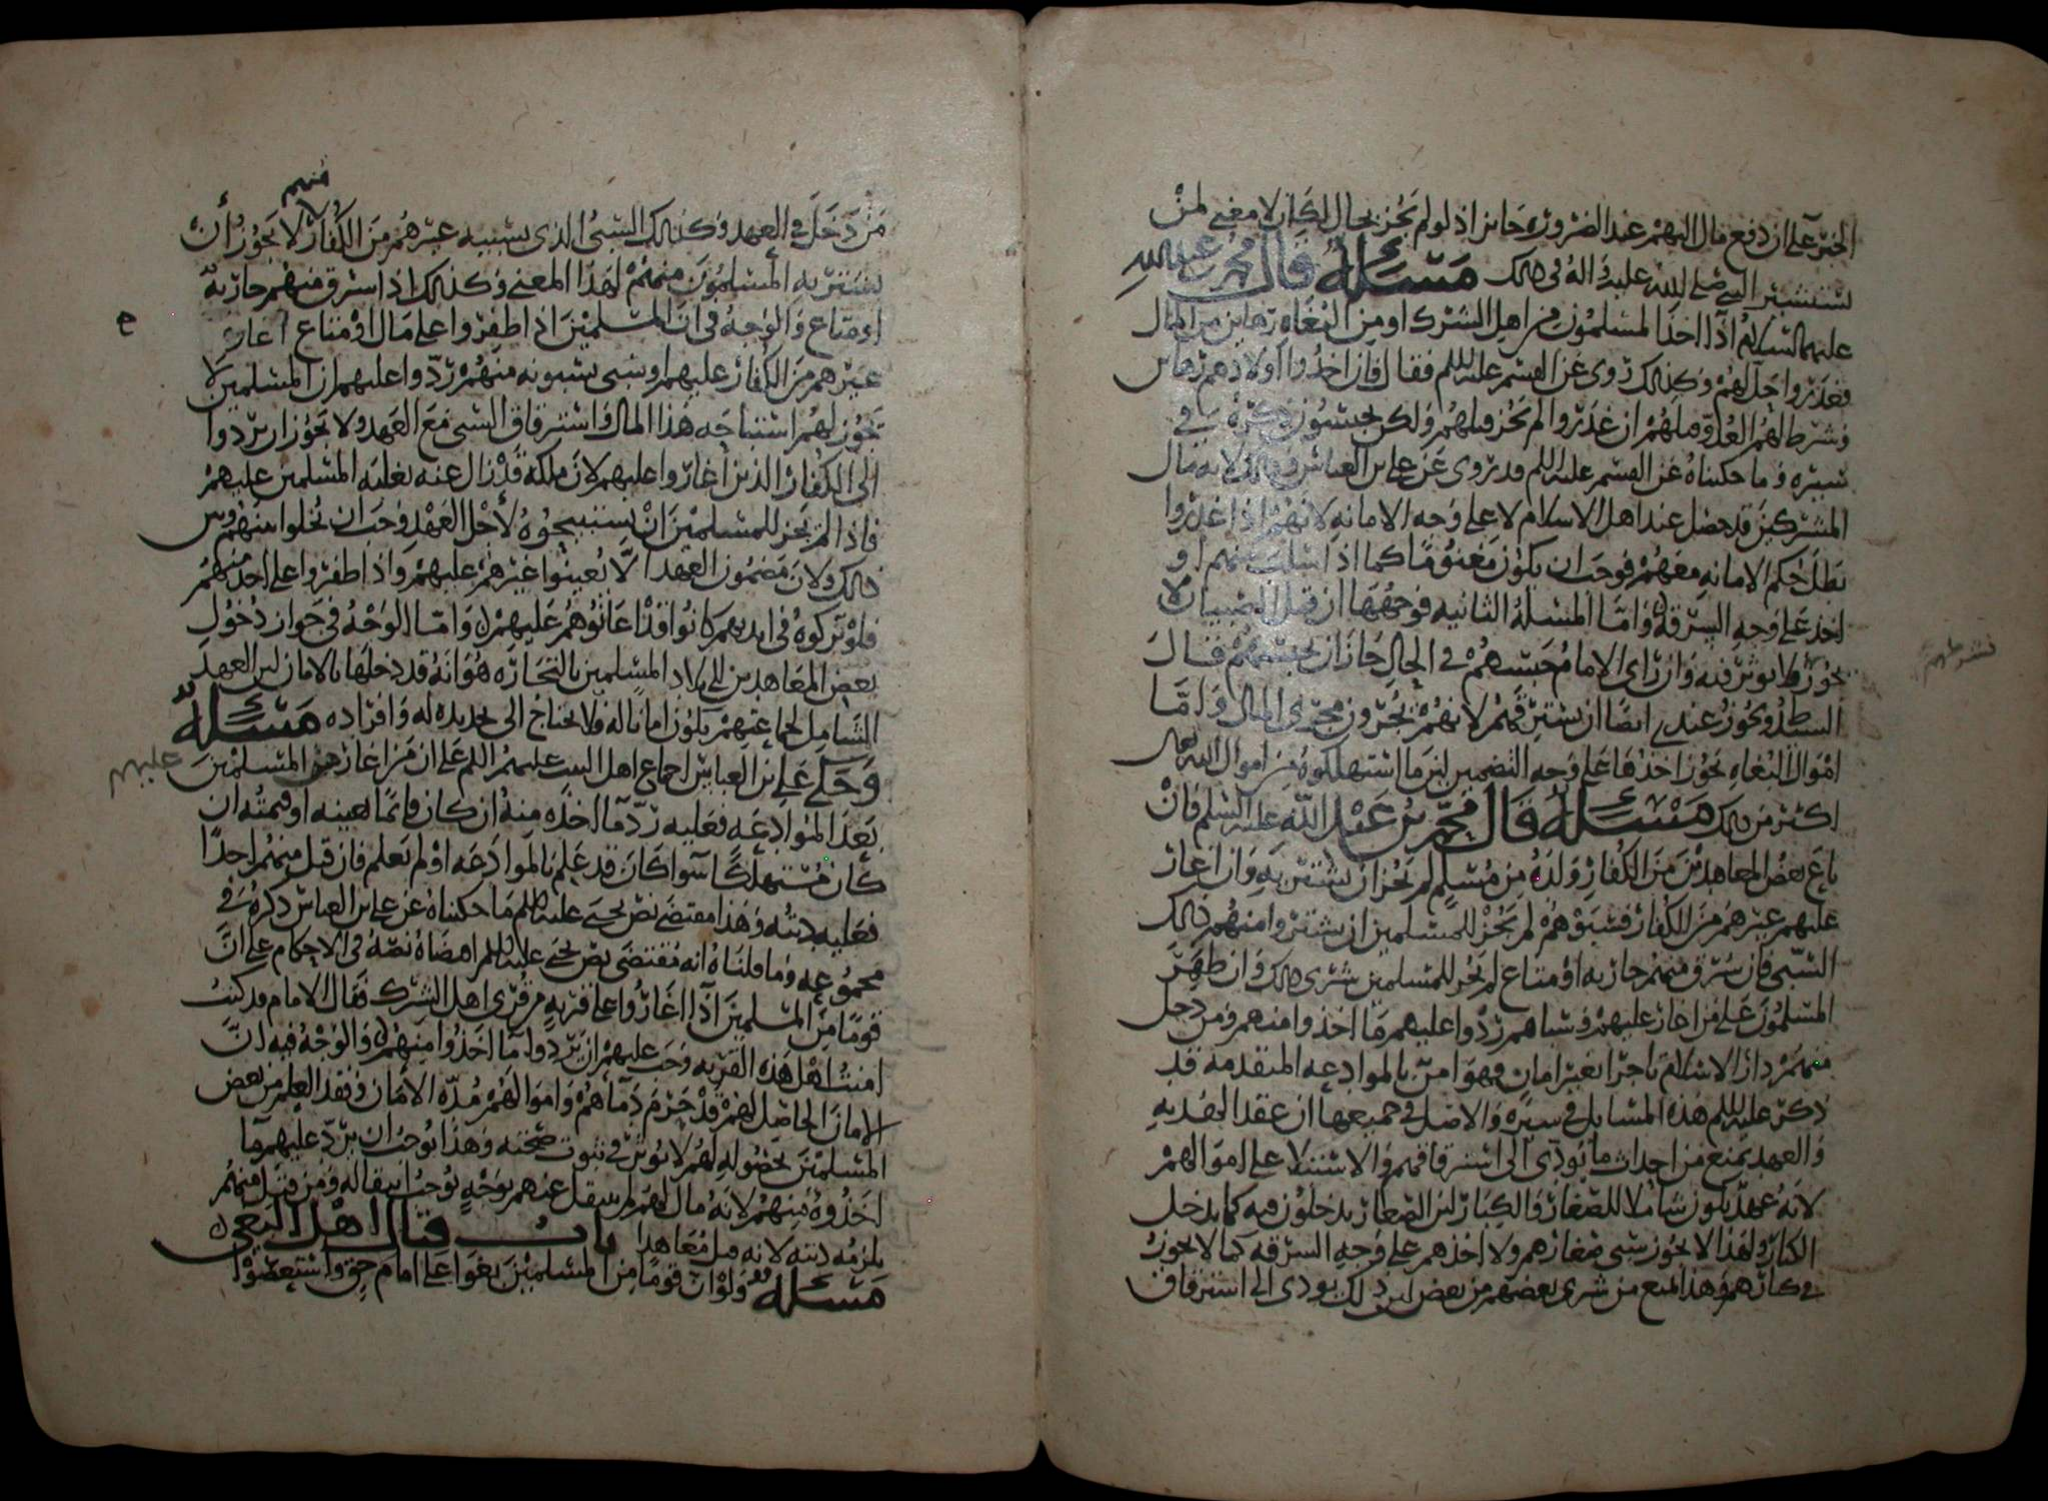 الخبر على ان دفع مال اليهم عند الضرورة جايز اذ لو لم يجز بحال لكان لا معنى لمن
يستشير النبي صلى الله عليه واله في ذلك مسئلة قال محمد بن عبد الله
عليهما السلام اذا اخذ المسلمون من اهل الشرك او من البغاة رهاين من المال
فغدروا حل لهم وكذلك روى عن القسم عليه السلم فقال فان اخذوا اولادهم رهاين
وشرط لهم العدو قتلهم ان غدروا لم يجز قتلهم ولكن يحبسون ذكره في
سيره وما حكيناه عن القسم عليه السلم قد روى عن علي بن العباس وذلك لانه مال
المشركين قد حصل عند اهل الاسلام لا على وجه الامانه لانهم اذا غدروا
بطل حكم الامانه معهم فوجب ان يكون مغنوما كما اذا سلب منهم او
اخذ على وجه السرقه واما المسئلة الثانيه فوجهها ان قتل الصبيان لا
يجوز ولا يوثر فيه وان راى الامام حبسهم في الحال جاز ان يحبسهم قال
السيد ويجوز عندي ايضا ان يسترقهم لانهم يجرون مجرى المال واما
اموال البغاه يجوز اخذها على وجه التضمين لما استهلكوه من اموال الله تعالى
اكثر من ذلك مسئلة قال محمد بن عبد الله عليه السلم فان
باع بعض المعاهدين من الكفار ولده من مسلم لم يجز ان يشتريه وان اغار
عليهم غيرهم من الكفار فسبوهم لم يجز للمسلمين ان يشتروا منهم ذلك
السبي فان سرق منهم جاريه او متاع لم يجز للمسلمين شرى ذلك وان ظهر
المسلمون على من اغار عليهم وسباهم ردوا عليهم ما اخذوا منهم ومن دخل
منهم دار الاسلام تاجرا بغير امان فهو امن بالموادعه المتقدمه قد
ذكر عليه السلم هذه المسايل في سيره والاصل في جميعها ان عقد الهدنه
والعهد يمنع من احداث ما يودى الى استرقاقهم والاستيلا على اموالهم
لانه عهد يكون شاملا للصغار والكبار لان الصغار يدخلون فيه كما يدخل
الكبار ولهذا لا يجوز سبي صغارهم ولا اخذهم على وجه السرقه كما لا يجوز
في كبارهم وهذا المنع من شرى بعضهم من بعض لان ذلك يودى الى استرقاق
منهم
من دخل في العهد وكذلك الشي الذي يسبيه غيرهم من الكفار لا يجوز أن
يشتريه المسلمون منهم لهذا المعنى وكذلك اذا سرق منهم جاريه
او متاع والوجه في ان المسلمين اذا ظفروا على مال او متاع اغار
غيرهم من الكفار عليهم او سبي يسبونه منهم ردوا عليهم ان المسلمين لا
يجوز لهم استباحه هذا المال واسترقاق السبي مع العهد ولا يجوز ان يردوا
الى الكفار الذين اغاروا عليهم لان ملكه قد زال عنه بغلبه المسلمين عليهم
فاذا لم يجز للمسلمين ان يستبيحوه لأجل العهد وجب ان يخلوا بينهم وبين
ذلك ولان مضمون العهد الا يعينوا غيرهم عليهم واذا ظفروا على اخذ منهم
فلو تركوه في ايديهم كانوا قد اعانوهم عليهم واما الوجه في جواز دخول
بعض المعاهدين الى بلاد المسلمين بالتجاره هو انه قد دخلها بالامان لان العهد
الشامل لجماعتهم يكون امانا له فلا يحتاج الى تجديده له وافراده مسئلة
وحكى علي بن العباس اجماع اهل البيت عليهم السلم على ان من اغار من المسلمين عليهم
بعد الموادعه فعليه رد ما اخذه منه ان كان قائما بعينه او قيمته ان
كان مستهلكا سوا كان قد علم بالموادعه او لم يعلم فان قتل منهم احدا
فعليه ديته وهذا مقتضى نص يحيى عليه السلم ما حكيناه عن علي بن العباس ذكره في
مجموعه وما قلناه انه مقتضى نص يحيى عليه السلم اقتضاه نصه في الاحكام على ان
قوما من المسلمين اذا اغاروا على قريه من قرى اهل الشرك فقال الامام قد كنت
امنت اهل هذه القريه وجب عليهم ان يردوا ما اخذوا منهم والوجه فيه ان
الامان الحاصل لهم قد حرم دمآهم واموالهم مده الامان وفقد العلم من بعض
المسلمين بحصوله لهم لا يوثر في ثبوت صحته وهذا يوجب ان يرد عليهم ما
اخذوه منهم لانه مال لهم لم ينتقل عنهم بوجه يوجب انتقاله ومن قتل منهم
يلزمه ديته لانه قتل معاهدا باب قتال اهل البغي
مسئلة ولو ان قوما من المسلمين بغوا على امام حق واستعصوا